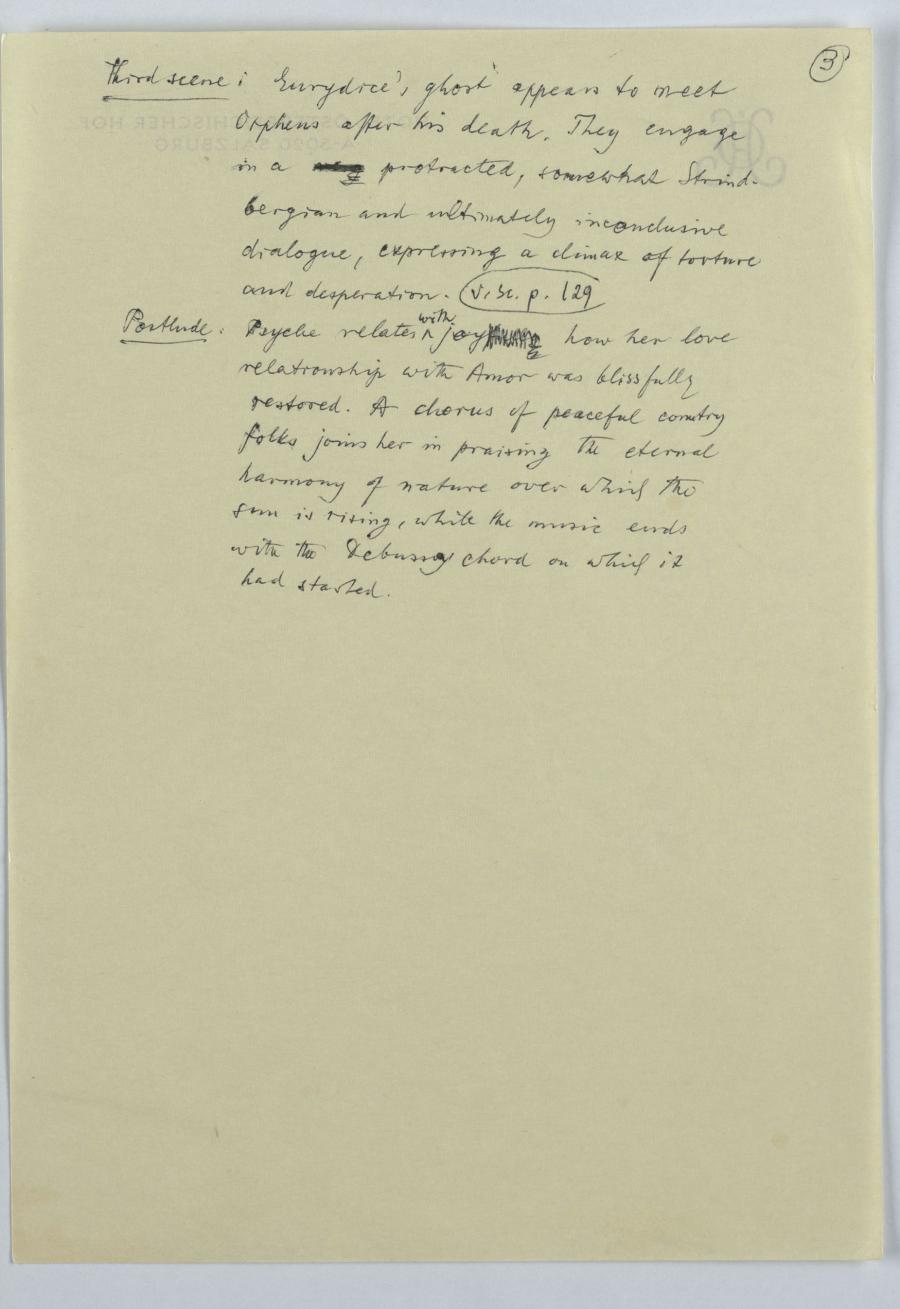 3
Third scene: Eurydice's ghost appears to meet
Orpheus after his death. They engage
in a protracted, somewhat Strind-
bergian and ultimately inconclusive
dialogue, expressing a climax of torture
and desperation. v. Sc. p. 129
Postlude: Psyche relates with joy how her love
relationship with Amor was blissfully
restored. A chorus of peaceful country
folks joins her in praising the eternal
harmony of nature over which the
sun is rising, while the music ends
with the Debussy chord on which it
had started.